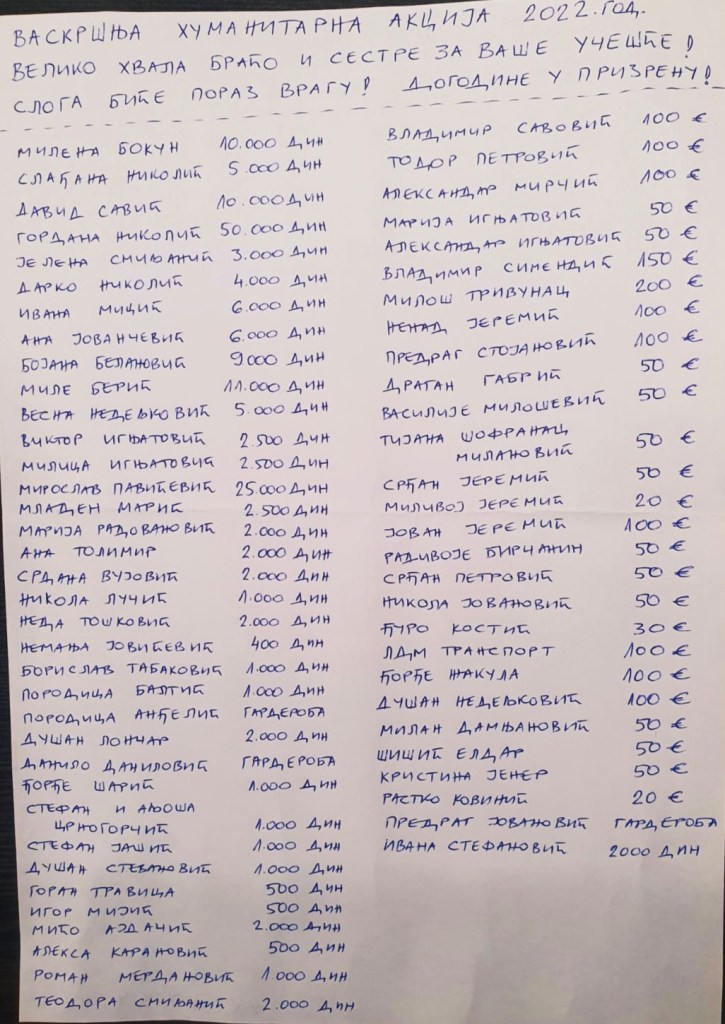 ВАСКРШЊА ХУМАНИТАРНА АКЦИЈА 2022. ГОД.
ВЕЛИКО ХВАЛА БРАЋО И СЕСТРЕ ЗА ВАШЕ УЧЕШЋЕ!
СЛОГА БИЋЕ ПОРАЗ ВРАГУ! ДОГОДИНЕ У ПРИЗРЕНУ!
МИЛЕНА БОКУН 10.000 ДИН
СЛАЂАНА НИКОЛИЋ 5.000 ДИН
ДАВИД САВИЋ 10.000 ДИН
ГОРДАНА НИКОЛИЋ 50.000 ДИН
ЈЕЛЕНА СМИЉАНИЋ 3.000 ДИН
ДАРКО НИКОЛИЋ 4.000 ДИН
ИВАНА МИЦИЋ 6.000 ДИН
АНА ЈОВАНЧЕВИЋ 6.000 ДИН
БОЈАНА БЕЛАНОВИЋ 9000 ДИН
МИЛЕ БЕРИЋ 11.000 ДИН
ВЕСНА НЕДЕЉКОВИЋ 5.000 ДИН
ВИКТОР ИГЊАТОВИЋ 2.500 ДИН
МИЛИЦА ИГЊАТОВИЋ 2.500 ДИН
МИРОСЛАВ ПАВИЋЕВИЋ 25.000 ДИН
МЛАДЕН МАРИЋ 2.500 ДИН
МАРИЈА РАДОВАНОВИЋ 2.000 ДИН
АНА ТОЛИМИР 2.000 ДИН
СРДАНА ВУЈОВИЋ 2.000 ДИН
НИКОЛА ЛУЧИЋ 1.000 ДИН
НЕДА ТОШКОВИЋ 2.000 ДИН
НЕМАЊА ЈОВИЋЕВИЋ 400 ДИН
БОРИСЛАВ ТАБАКОВИЋ 1.000 ДИН
ПОРОДИЦА БАЛТИЋ 1.000 ДИН
ПОРОДИЦА АНЂЕЛИЋ ГАРДЕРОБА
ДУШАН ЛОНЧАР 2.000 ДИН
ДАНИЛО ДАНИЛОВИЋ ГАРДЕРОБА
ЂОРЂЕ ШАРИЋ 1.000 ДИН
СТЕФАН И АЉОША
ЦРНОГОРЧИЋ 1.000 ДИН
СТЕФАН ЈАШИЋ 1.000 ДИН
ДУШАН СТЕВАНОВИЋ 1.000 ДИН
ГОРАН ТРАВИЦА 500 ДИН
ИГОР МИЈИЋ 500 ДИН
МИЋО АЈДАЧИЋ 2.000 ДИН
АЛЕКСА КАРАНОВИЋ 500 ДИН
РОМАН МЕРДАНОВИЋ 1.000 ДИН
ТЕОДОРА СМИЉАНИЋ 2.000 ДИН
ВЛАДИМИР САВОВИЋ 100 €
ТОДОР ПЕТРОВИЋ 100 €
АЛЕКСАНДАР МИРЧИЋ 100 €
МАРИЈА ИГЊАТОВИЋ 50 €
АЛЕКСАНДАР ИГЊАТОВИЋ 50 €
ВЛАДИМИР СИМЕНДИЋ 150 €
МИЛОШ ТРИВУНАЦ 200 €
НЕНАД ЈЕРЕМИЋ 100 €
ПРЕДРАГ СТОЈАНОВИЋ 100 €
ДРАГАН ГАБРИЋ 50 €
ВАСИЛИЈЕ МИЛОШЕВИЋ 50 €
ТИЈАНА ШОФРАНАЦ
МИЛАНОВИЋ 50 €
СРЂАН ЈЕРЕМИЋ 50 €
МИЛИВОЈ ЈЕРЕМИЋ 20 €
ЈОВАН ЈЕРЕМИЋ 100 €
РАДИВОЈЕ БИРЧАНИН 50 €
СРЂАН ПЕТРОВИЋ 50 €
НИКОЛА ЈОВАНОВИЋ 50 €
ЂУРО КОСТИЋ 30 €
ЛДМ ТРАНСПОРТ 100 €
ЂОРЂЕ ЖАКУЛА 100 €
ДУШАН НЕДЕЉКОВИЋ 100 €
МИЛАН ДАМЊАНОВИЋ 50 €
ШИШИЋ ЕЛДАР 50 €
КРИСТИНА ЈЕНЕР 50 €
РАСТКО КОВИНИЋ 20 €
ПРЕДРАГ ЈОВАНОВИЋ ГАРДЕРОБА
ИВАНА СТЕФАНОВИЋ 2000 ДИН